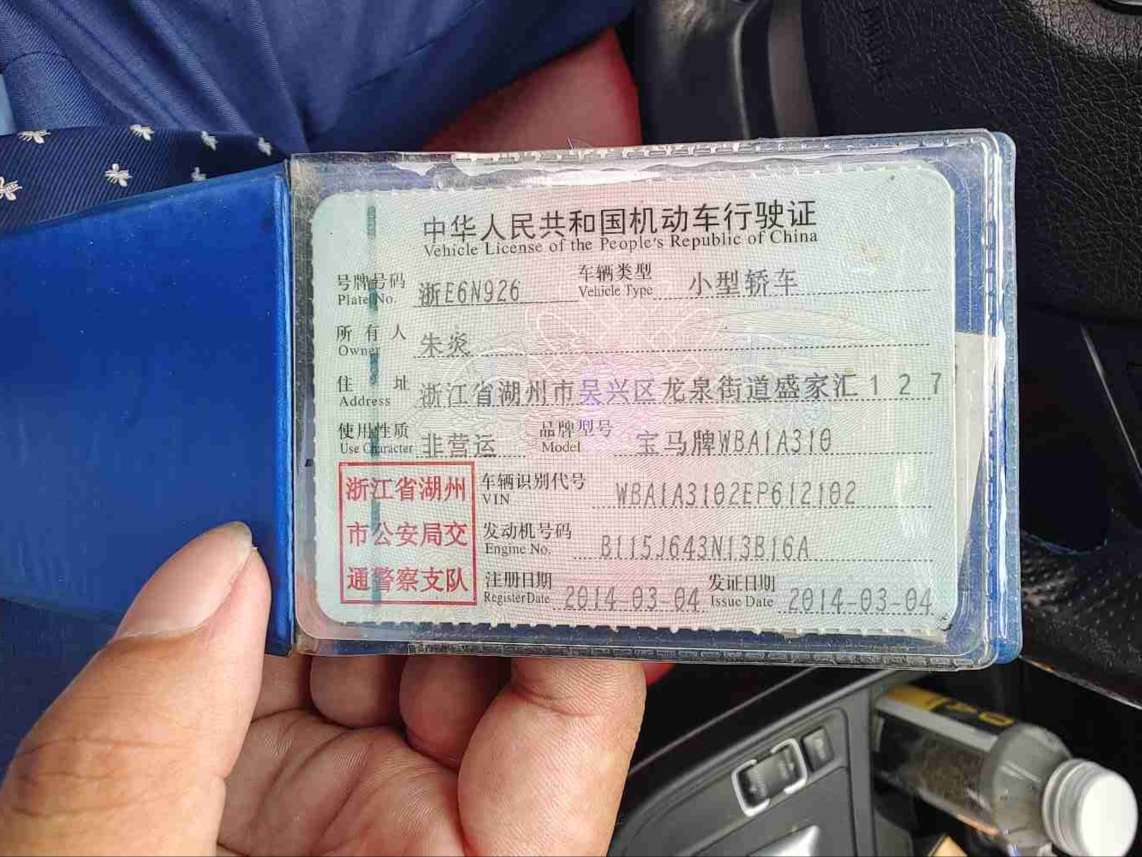 中华人民共和国机动车行驶证
Vehicle License of the People's Republic of China
号牌号码 浙E6N926 车辆类型 小型轿车
Plate No. Vehicle Type
所有人 朱炎
Owner
住址 浙江省湖州市吴兴区龙泉街道盛家汇127
Address
使用性质 非营运 品牌型号 宝马牌WBA1A310
Use Character Model
浙江省湖州
市公安局交
通警察支队
车辆识别代号 WBA1A3102EP612102
VIN
发动机号码 B115J643N13B16A
Engine No.
注册日期 2014-03-04 发证日期 2014-03-04
Register Date Issue Date